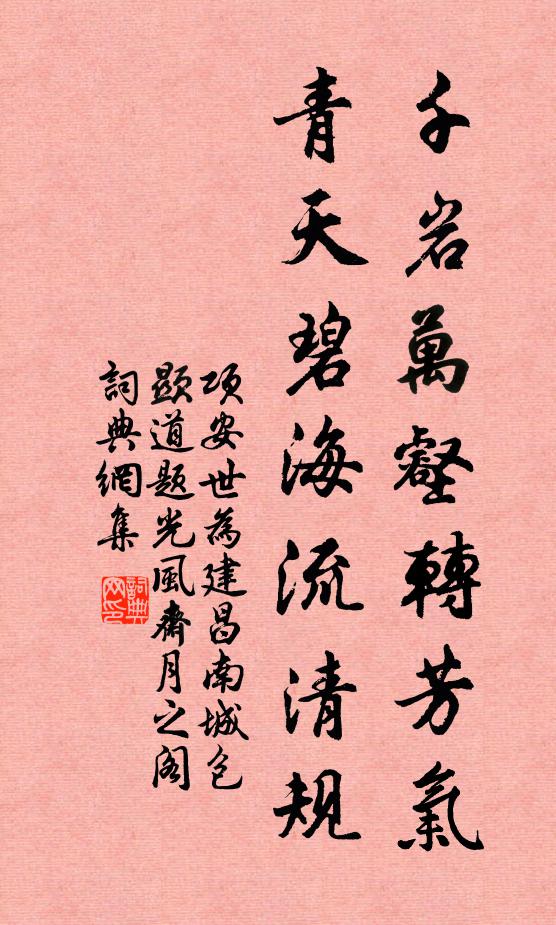 千岩萬壑轉芳氣
青天碧海流清規
項安世為建昌南城包
顯道題光風齋月之閣
詞典網集
詞典網印